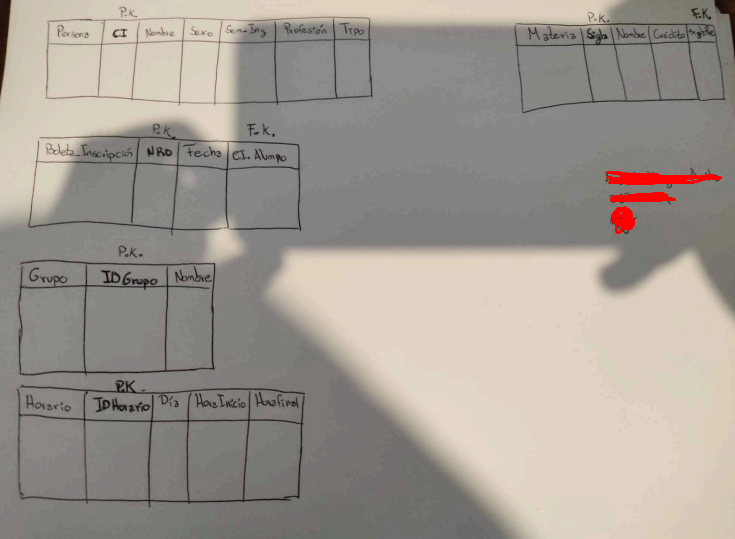 P.K.
Persona CI Nombre Sexo Sem-Ing Profesión Tipo
P.K. F.K.
Materia Sigla Nombre Crédito
P.K. F.K.
Boleta_Inscripción NRO Fecha CI.Alumno
P.K.
Grupo IDGrupo Nombre
P.K.
Horario IDHorario Día HoraInicio HoraFinal